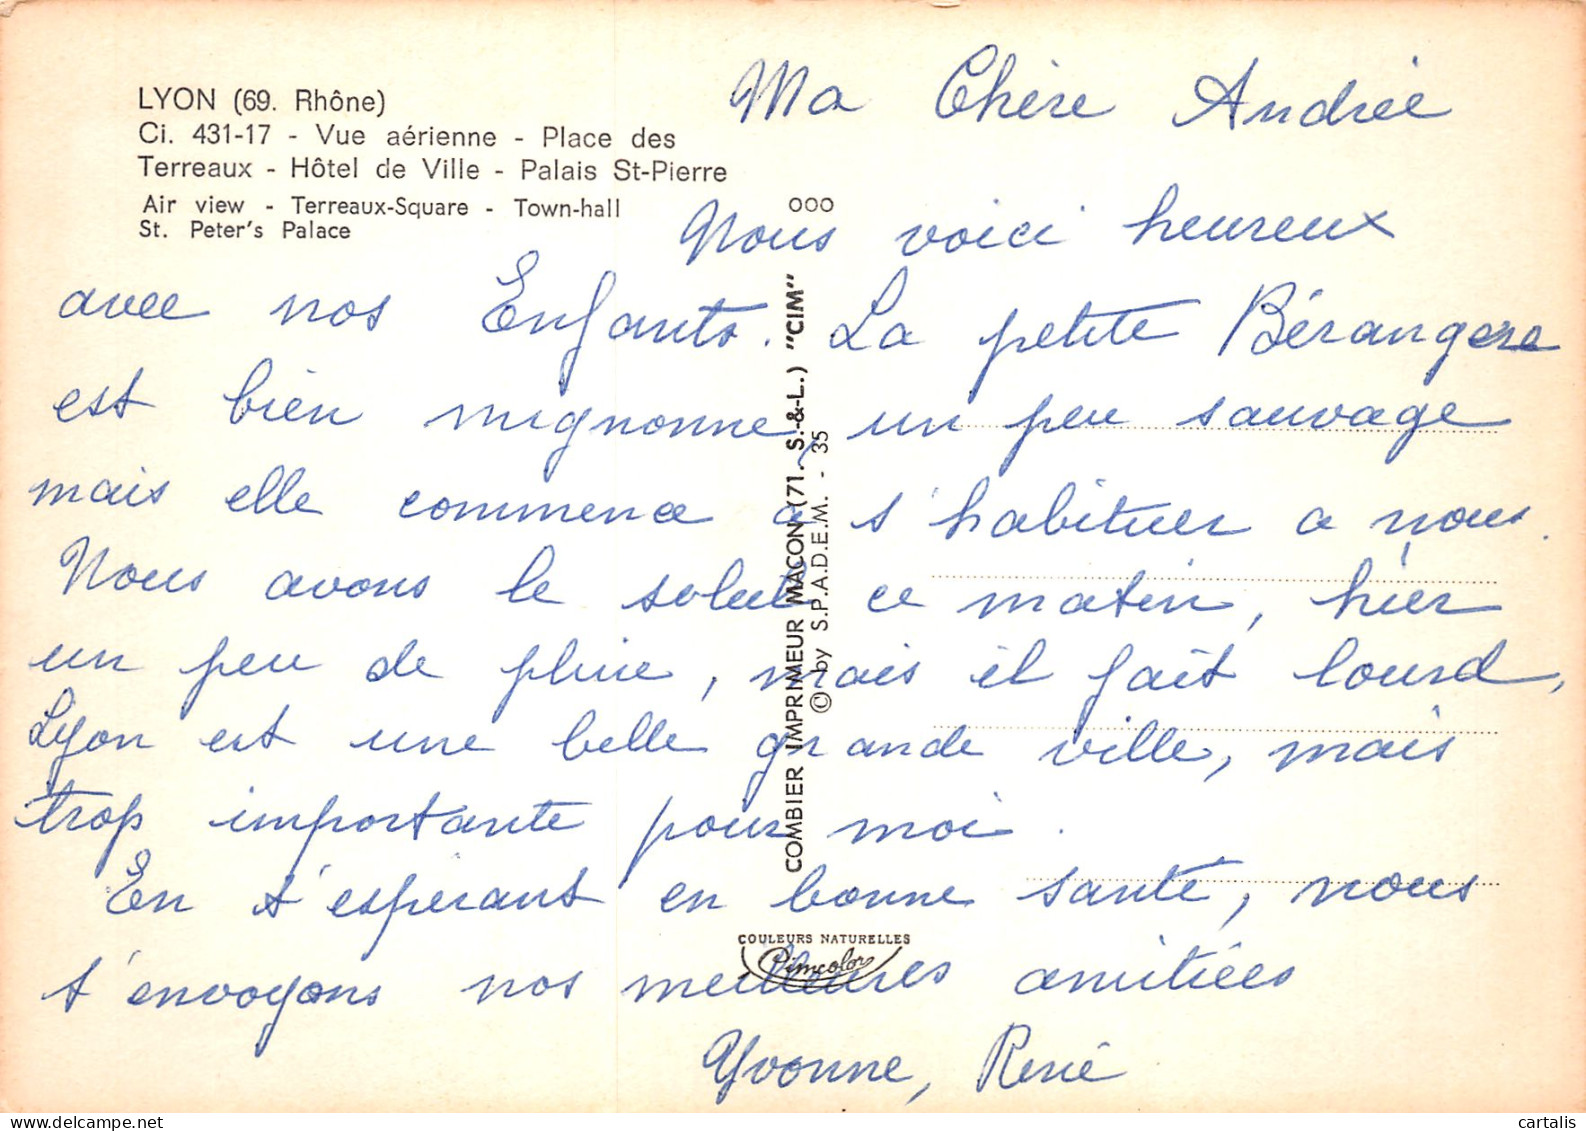 LYON (69. Rhône)
Ci. 431-17 - Vue aérienne - Place des
Terreaux - Hôtel de Ville - Palais St-Pierre
Air view - Terreaux-Square - Town-hall
St. Peter's Palace
Ma Chère Andrée
000
Nous voici heureux
avec nos Enfants. La petite Bérangère
est bien mignonne, un peu sauvage
mais elle commence a s'habituer a nous.
Nous avons le soleil ce matin, hier
un peu de pluie, mais il fait lourd,
Lyon est une belle grande ville, mais
trop importante pour moi.
En t'esperant en bonne santé, nous
t'envoyons nos meilleures amitiées
Yvonne, René
COMBIER IMPRIMEUR MACON (71. S.-&-L.) "CIM"
© by S.P.A.D.E.M. - 35
COULEURS NATURELLES
Cimcolor
cartalis